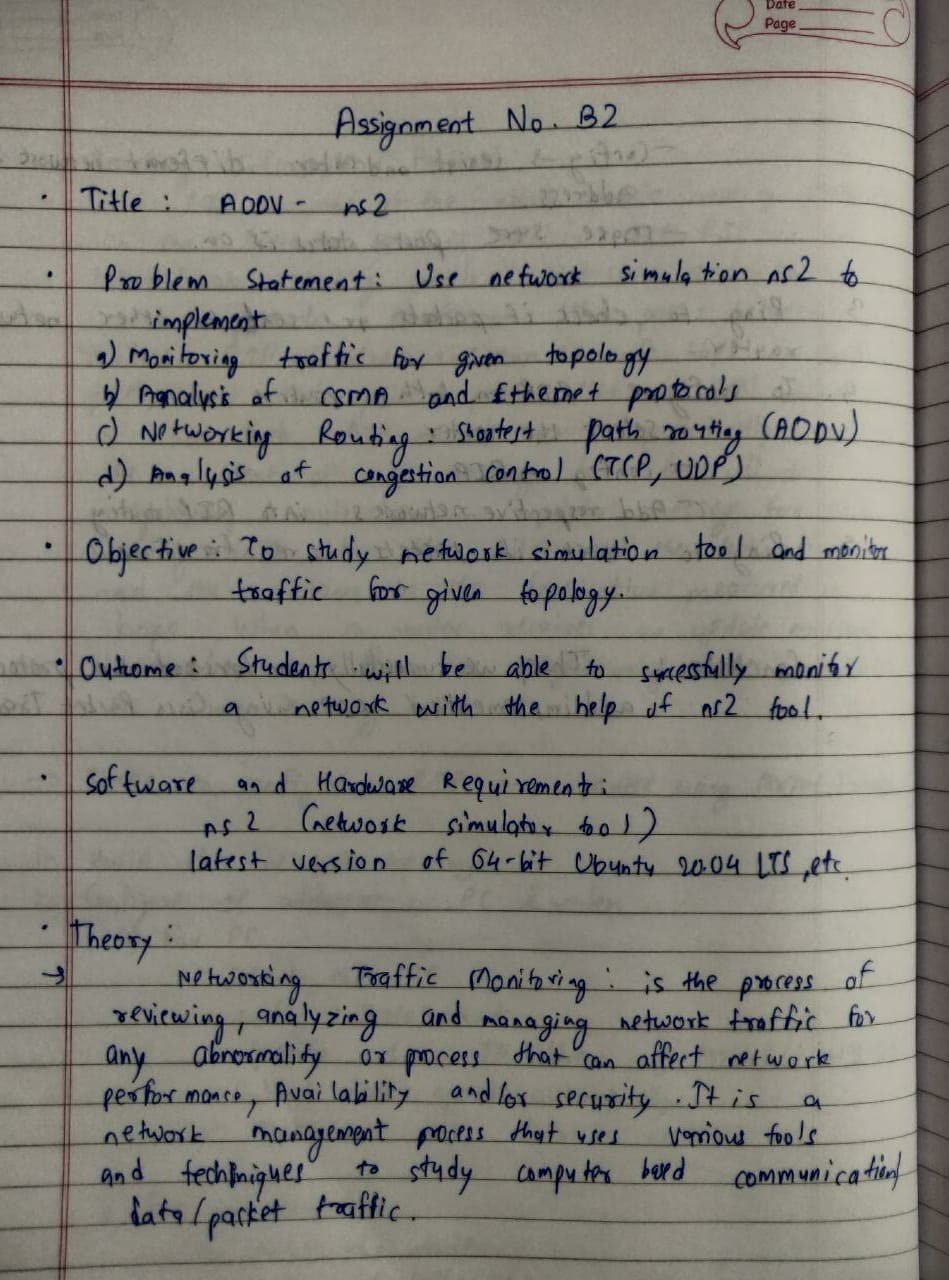 Date
Page
Assignment No. B2
• Title : AODV - ns2
• Problem Statement : Use network simulation ns2 to
implement
a) Monitoring traffic for given topology
b) Analysis of CSMA and Ethernet protocols
c) Networking Routing : Shortest path routing (AODV)
d) Analysis of congestion control (TCP, UDP)
• Objective : To study network simulation tool and monitor
traffic for given topology.
• Outcome : Students will be able to successfully monitor
a network with the help of ns2 tool.
• Software and Hardware Requirements :
ns 2 (network simulator tool)
latest version of 64-bit Ubuntu 20.04 LTS, etc.
• Theory :
→ Networking Traffic Monitoring : is the process of
reviewing, analyzing and managing network traffic for
any abnormality or process that can affect network
performance, Availability and/or security. It is a
network management process that uses various tools
and techniques to study computer based communication/
data/packet traffic.